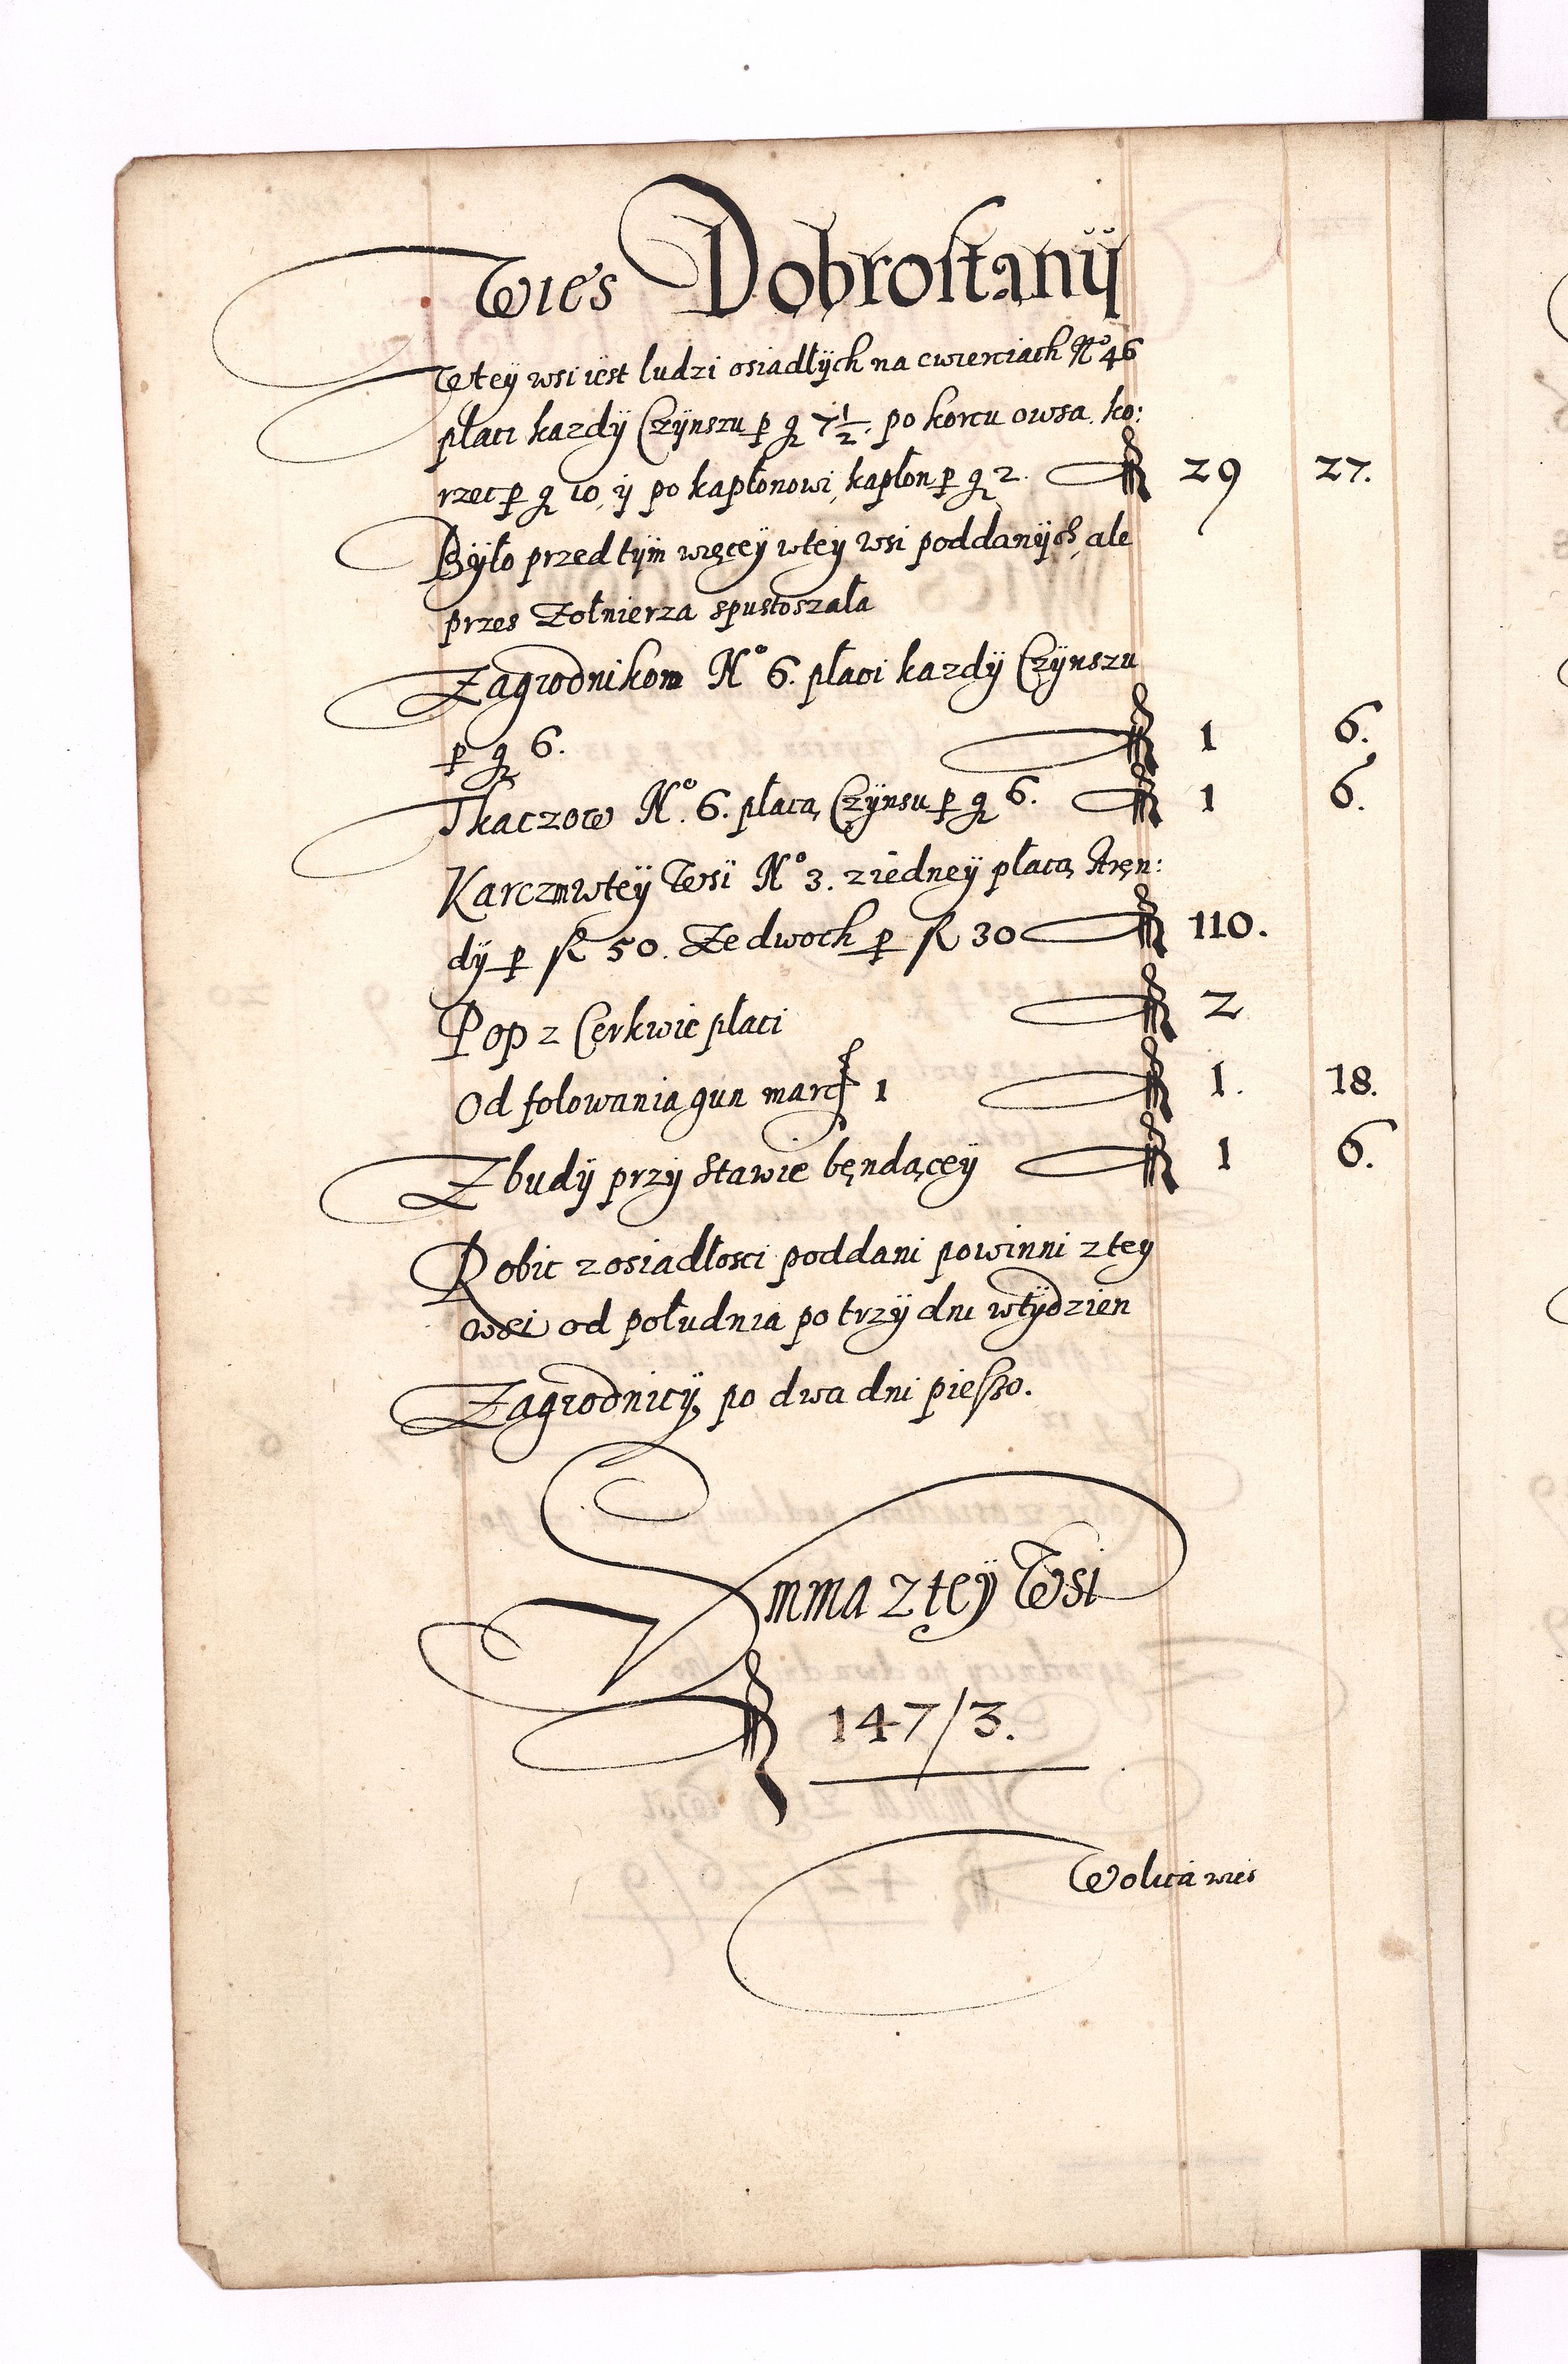 Wies Dobrostanÿ
Wteÿ wsi iest ludzi osiadłÿch na cwierciach No 46
płaci kazdÿ Czÿnszu p g 7 1/2. po korcu owsa. ko:
rzec p g 10, ÿ po kapłonowi, kapłon p g 2. fl 29 27.
Bÿło przed tÿm więceÿ wteÿ wsi poddanÿch, ale
przes Zołnierza spustoszała
Zagrodnikow No 6. płaci kazdÿ Czÿnszu
p g 6. fl 1 6.
Tkaczow No. 6. płacą Czÿnsu p g 6. fl 1 6.
Karczm wteÿ Wsi No 3. z iedneÿ płacą Aręn:
dÿ p fl 50. Ze dwoch p fl 30 fl 110.
Pop z Cerkwie płaci fl 2
Od folowania gun marc 1 fl 1. 18.
Z budÿ przÿ stawie bęndąceÿ fl 1 6.
Robic z osiadłosci poddani powinni z teÿ
wsi od południa po trzÿ dni wtÿdzien
Zagrodnicÿ, po dwa dni pieszo.
Summa z teÿ Wsi
fl 147/3.
Wolica wies